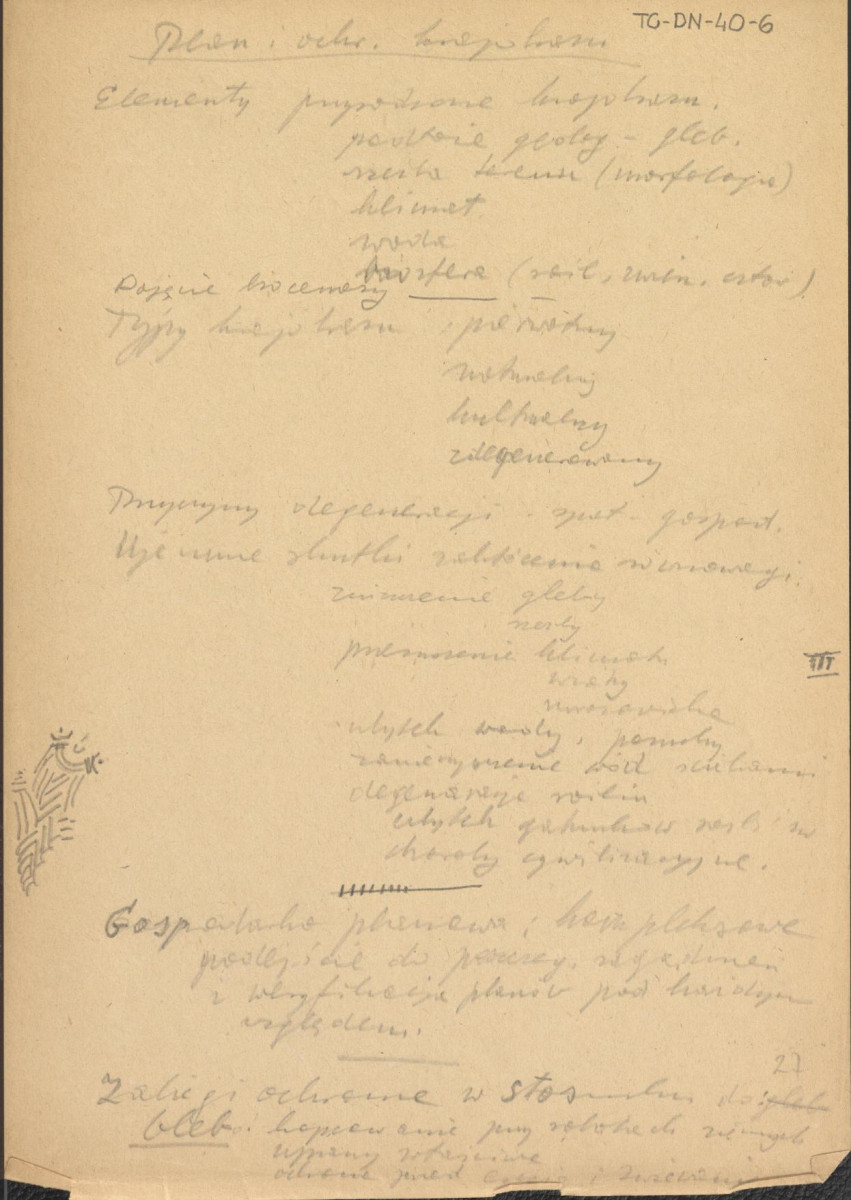 TG-DN-40-6
Plan i ochr. krajobrazu
Elementy przyrodzone krajobrazu.
podłoże geolog - gleb.
rzeźba terenu (morfologia)
klimat
woda
biosfera (rośl, zwierz. człow)
Pojęcie biocenozy
Typy krajobrazu : pierwotny
naturalny
kulturalny
zdegenerowany
Przyczyny degeneracji - społ - gospod.
Ujemne skutki zakłócenia równowagi.
zniszczenie gleby
rzeźby
przesuszenie klimatu
wiatry
umrozowiska
ubytek wody, pomoby
zanieczyszczenie wód ściekami
degeneracja roślin
ubytek gatunków rośl i zw
choroby cywilizacyjne.
Gospodarka planowa; kompleksowe
podejście do poszczeg. zagadnień
i weryfikacja planów pod każdym
względem.
27
Zabiegi ochronne w stosunku do: gleb
Gleb: hapsowanie przy robotach ziemnych
uprawy właściwe
ochrona przed erozją i zwiewaniem
III